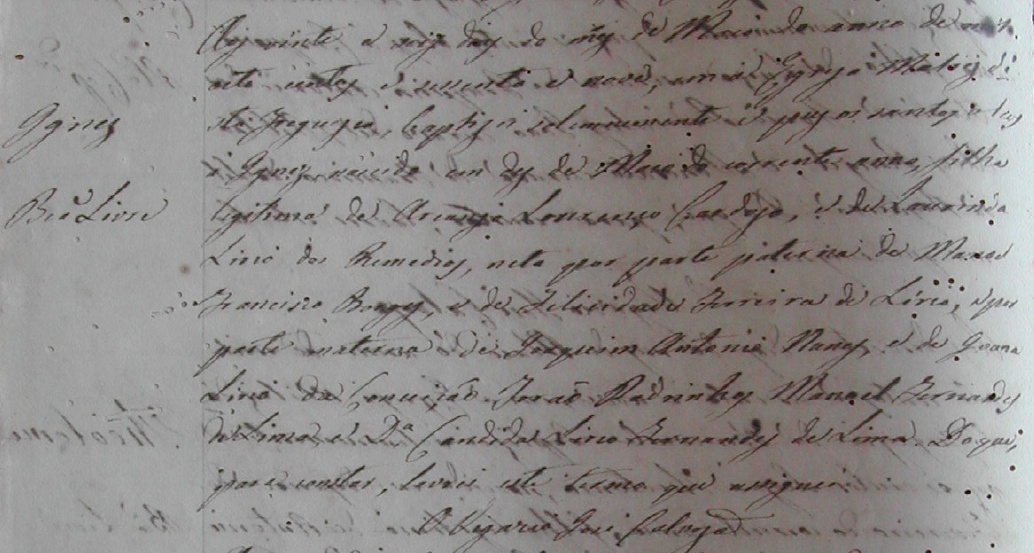 Aos vinte e seis dias do mez de Maio do anno de mil
oito centos e secenta e nove, em a Igreja Matriz d'
sta freguezia, baptizei solemnemente e puz os santos oleos
Ignez
a Ignez nascida em de Maio do corrente anno, filha
Bco Livre
legitima de Lourenço Cardozo, e de Laurinda
Liria dos Remedios, neta por parte paterna de Manoel
Francisco Borges, e de Felicidade Ferreira de Liria, e por
parte materna de Joaquim Antonio Nunes, e de Joana
Liria da Conceição. Forão Padrinhos Manoel Fernandes
de Lima e D.ª Candida Liria Fernandes de Lima. Do que,
para constar, lavrei este termo que assignei.
O Vigario José